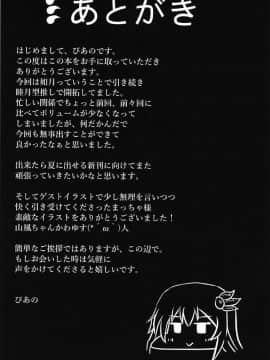 あとがき
はじめまして、ぴあのです。
この度はこの本をお手に取っていただき
ありがとうございます。
今回は如月っていうことで引き続き
睦月型推しで開拓してました。
忙しい関係でちょっと前回、前々回に
比べてボリュームが少なくなって
しまいましたが、何だかんだで
今回も無事出すことができて
良かったなぁと思いました。
出来たら夏に出せる新刊に向けてまた
頑張っていきたいかなと思います。
そしてゲストイラストで少し無理を言いつつ
快く引き受けてくださったまっちゃ様
素敵なイラストをありがとうございました！
山風ちゃんかわゆす(*´ω`)人
簡単なご挨拶ではありますが、この辺で。
もしお会いした時は気軽に
声をかけてくださると嬉しいです。
ぴあの